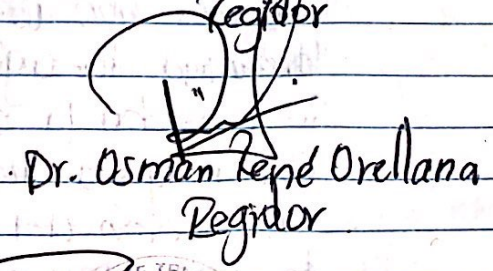 Regidor
Dr. Osman René Orellana
Regidor